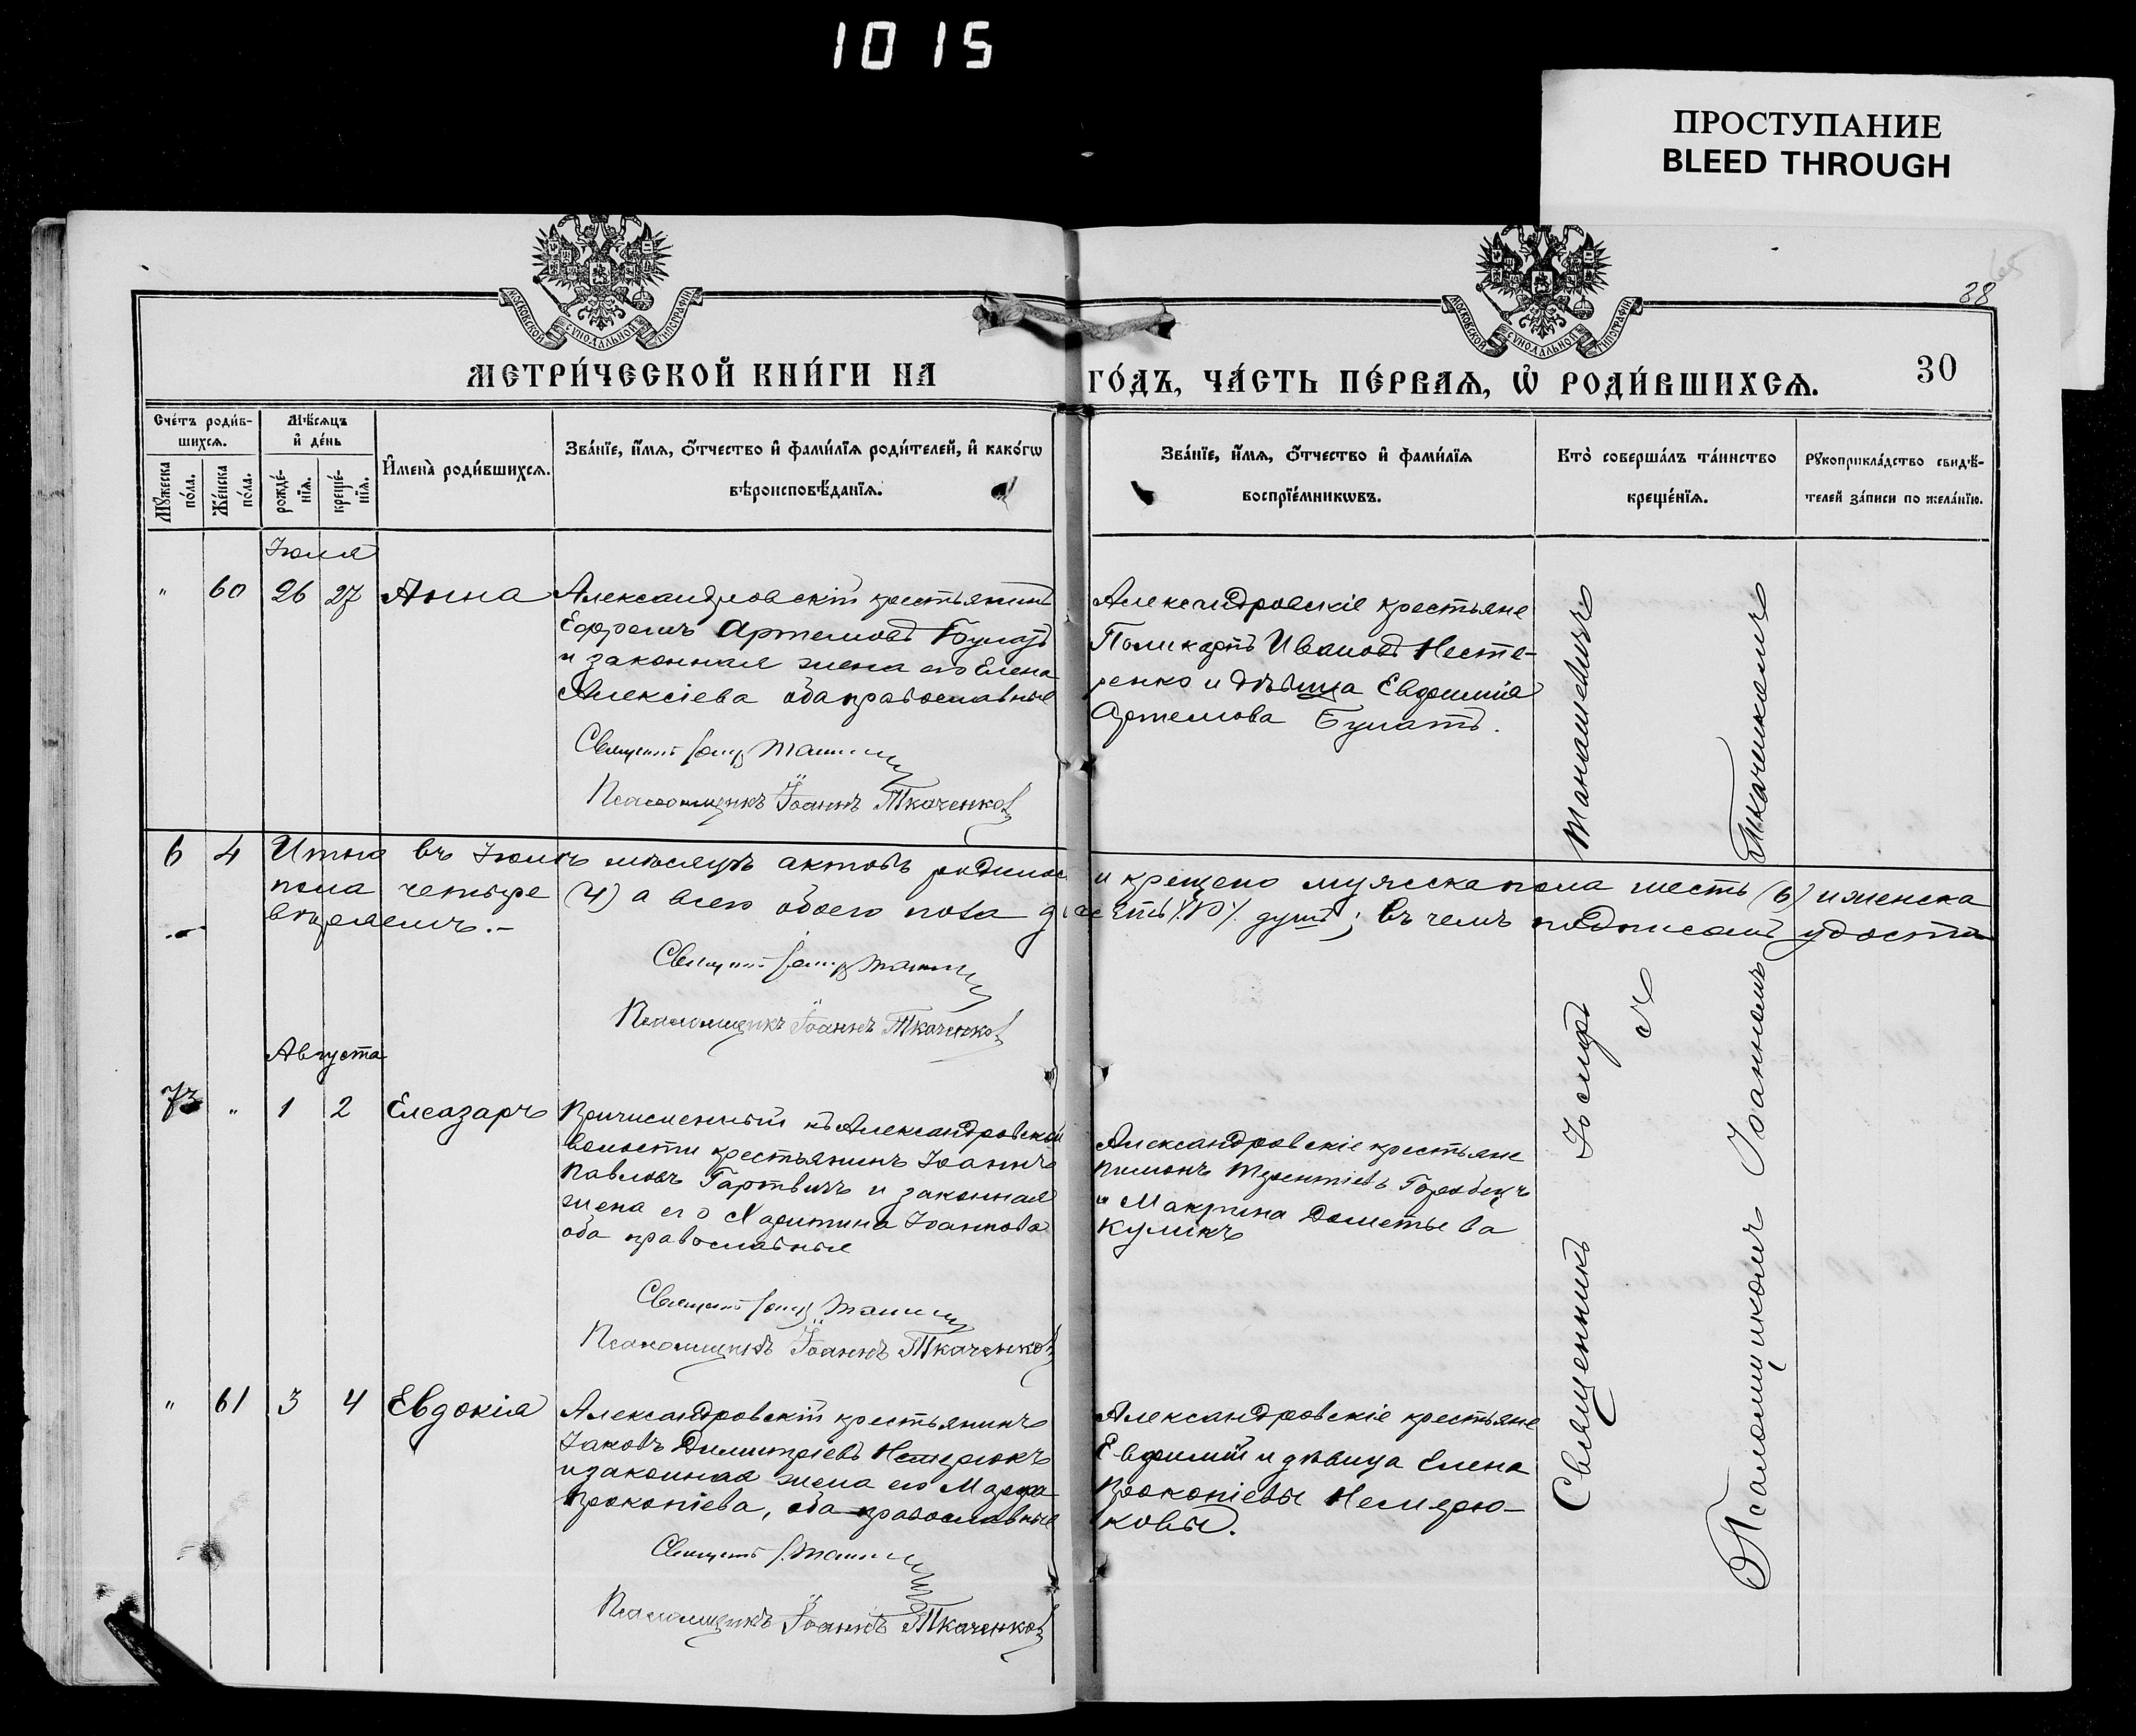 1015
ПРОСТУПАНИЕ
BLEED THROUGH
МОСКОВСКОЙ СѴНОДАЛЬНОЙ ТИПОГРАФІИ
МОСКОВСКОЙ СѴНОДАЛЬНОЙ ТИПОГРАФІИ
88
МЕТРИ́ЧЕСКОЙ КНИ́ГИ НА
ГО́ДЪ, ЧА́СТЬ ПЕ́РВАѦ, Ѡ҆ РОДИ́ВШИХСѦ.
30
Сче́тъ роди́в-
шихсѧ.
Мꙋ́жеска
по́ла.
Же́нска
по́ла.
Мѣ́сѧцъ
и҆ де́нь
рожде́-
нїѧ.
креще́-
нїѧ.
И҆мена̀ роди́вшихсѧ.
Зва́нїе, и҆́мѧ, ѻ҆́тчество и҆ фами́лїѧ роди́телей, и҆ како́гѡ
вѣроисповѣ́данїѧ.
Зва́нїе, и҆́мѧ, ѻ҆́тчество и҆ фами́лїѧ
воспрїе́мникѡвъ.
Кто̀ соверша́лъ та́инство
креще́нїѧ.
Рꙋкоприкла́дство свидѣ́-
телей за́писи по жела́нїю.
Іюля
" 60 26 27 Анна
Александровскій крестьянинъ
Ефремъ Артемовъ Булатъ
и законная жена его Елена
Алексіева оба православные
Священ Іосиф
Псаломщикъ Іоаннъ Ткаченков
Александровскіе крестьяне
Поликарпъ Ивановъ Несте-
ренко и дѣвица Евфимія
Артемова Булатъ.
6 4 Итого въ Іюлѣ мѣсяцѣ актовъ родилос и крещено мужска пола шесть (6) и женска
пола четыре (4) а всего обоего пола десять /10/ душъ; въ чемъ подписомъ удосто
вѣряемъ.-
Священ Іосиф
Псаломщикъ Іоаннъ Ткаченков
Августа
73 " 1 2 Елеазаръ
Причисленный къ Александровской
волости крестьянинъ Іоаннъ
Павловъ Гартвигъ и законная
жена его Харитина Іоаннова
оба православные
Священ Іосиф
Псаломщикъ Іоаннъ Ткаченков
Александровскіе крестьяне
Пименъ Терентіевъ Горобецъ
и Макрина Дометьева
Куликъ
" 61 3 4 Евдокія
Александровскій крестьянинъ
Іаковъ Димитріевъ
и законная жена его Марфа
Прокопіева, оба православные
Священ І.
Псаломщикъ Іоаннъ Ткаченков
Александровскіе крестьяне
Евфимій и дѣвица Елена
Прокопіевы Немерю-
ковы.
Священникъ Іосифъ Манашевичъ
съ
Псаломщикомъ Іоанномъ Ткаченкомъ